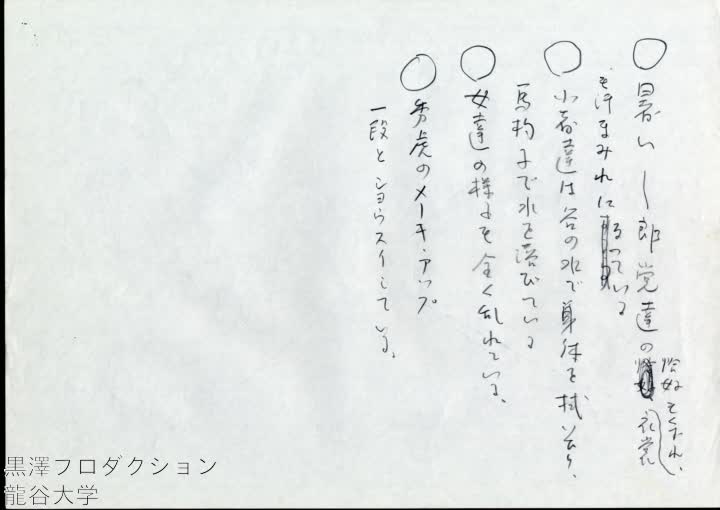 ○ 暑い――郎党達の恰好もくずれ、衣裳
も汗まみれになっている
○ 小者達は谷の水で身体を拭いたり、
馬杓子で水を浴びている
○ 女達の様子も全く乱れている、
○ 秀虎のメーキ・アップ
一段とショウスイしている、
黒澤プロダクション
龍谷大学